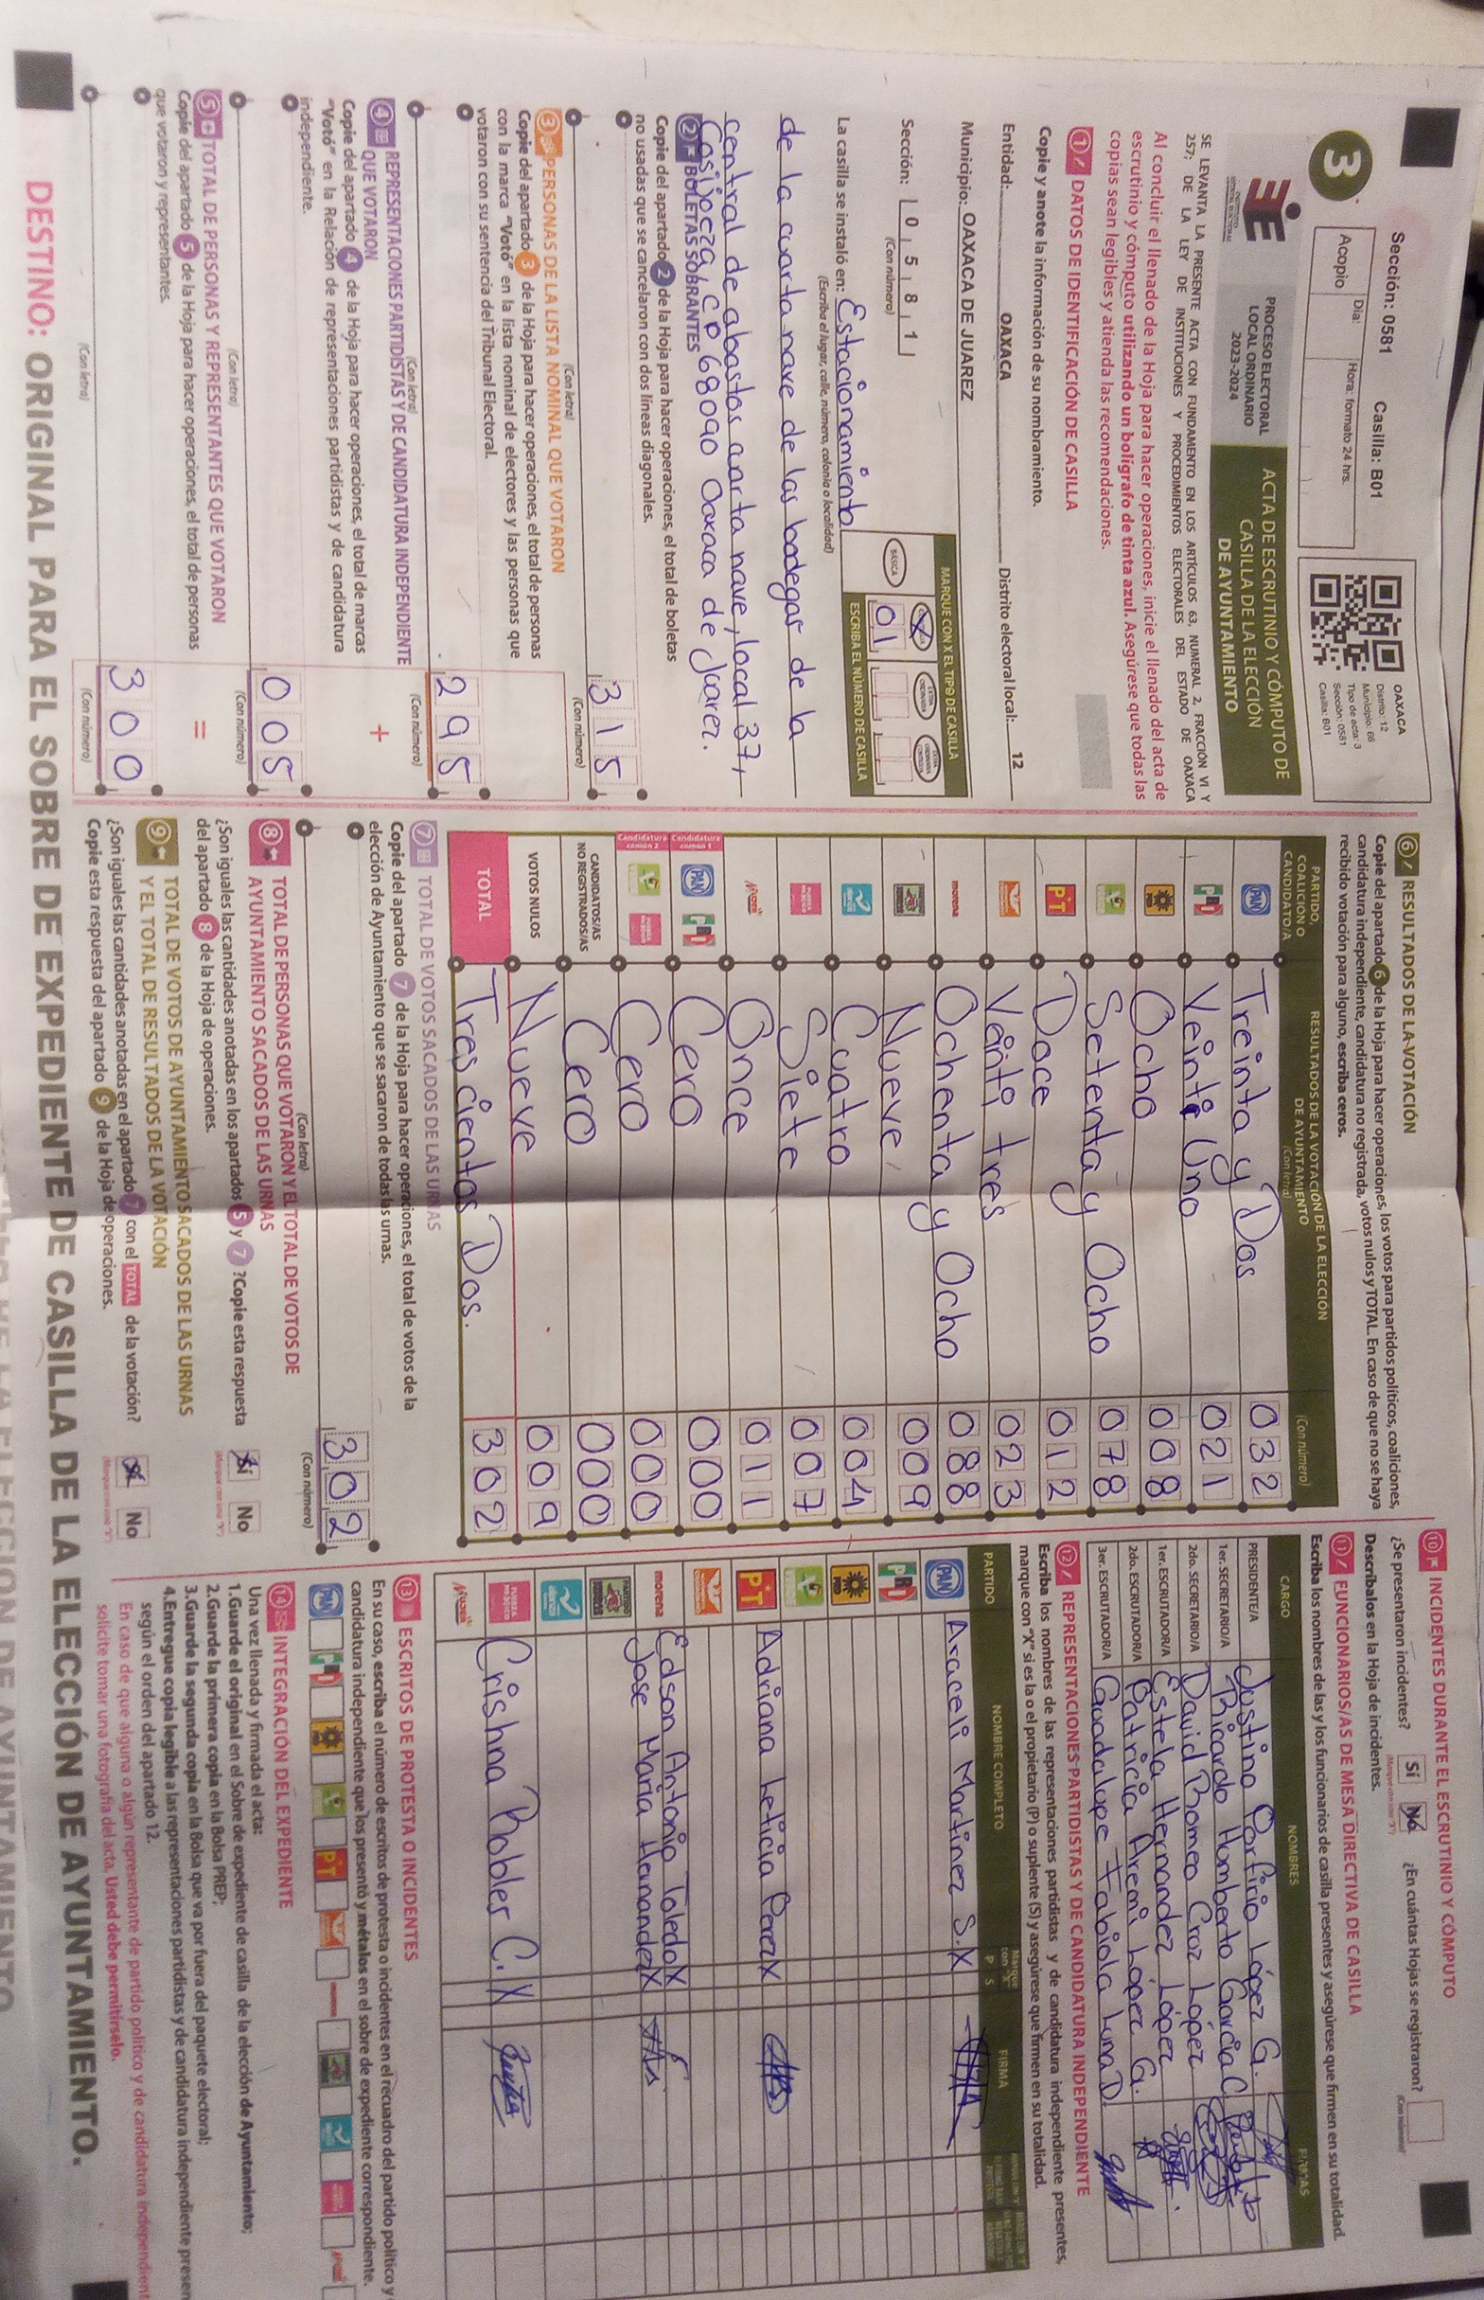 Sección: 0581 Casilla: B01
Día: Hora: formato 24 hrs.
Acopio
OAXACA
Distrito: 12
Municipio: 66
Tipo de acta: 3
Sección: 0581
Casilla: B01
3
PROCESO ELECTORAL
LOCAL ORDINARIO
2023-2024
ACTA DE ESCRUTINIO Y CÓMPUTO DE
CASILLA DE LA ELECCIÓN
DE AYUNTAMIENTO
SE LEVANTA LA PRESENTE ACTA CON FUNDAMENTO EN LOS ARTÍCULOS 63, NUMERAL 2, FRACCIÓN VI Y
257; DE LA LEY DE INSTITUCIONES Y PROCEDIMIENTOS ELECTORALES DEL ESTADO DE OAXACA
Al concluir el llenado de la Hoja para hacer operaciones, inicie el llenado del acta de
escrutinio y cómputo utilizando un bolígrafo de tinta azul. Asegúrese que todas las
copias sean legibles y atienda las recomendaciones.
1 DATOS DE IDENTIFICACIÓN DE CASILLA
Copie y anote la información de su nombramiento.
Entidad: OAXACA Distrito electoral local: 12
Municipio: OAXACA DE JUAREZ
Sección: 0 5 8 1
(Con número)
MARQUE CON X EL TIPO DE CASILLA
BÁSICA
01
ESCRIBA EL NÚMERO DE CASILLA
La casilla se instaló en: Estacionamiento
(Escriba el lugar, calle, número, colonia o localidad)
de la cuarta nave de las bodegas de la
central de abastos cuarta nave, local 37,
Cosijoeza, CP 68090 Oaxaca de Juarez.
2 BOLETAS SOBRANTES
Copie del apartado 2 de la Hoja para hacer operaciones, el total de boletas
no usadas que se cancelaron con dos líneas diagonales.
315
(Con letra) (Con número)
3 PERSONAS DE LA LISTA NOMINAL QUE VOTARON
Copie del apartado 3 de la Hoja para hacer operaciones, el total de personas
con la marca "Votó" en la lista nominal de electores y las personas que
votaron con su sentencia del Tribunal Electoral.
295
(Con letra) (Con número)
4 REPRESENTACIONES PARTIDISTAS Y DE CANDIDATURA INDEPENDIENTE
QUE VOTARON
+
Copie del apartado 4 de la Hoja para hacer operaciones, el total de marcas
"Votó" en la Relación de representaciones partidistas y de candidatura
independiente.
005
(Con letra) (Con número)
5 TOTAL DE PERSONAS Y REPRESENTANTES QUE VOTARON
=
Copie del apartado 5 de la Hoja para hacer operaciones, el total de personas
que votaron y representantes.
300
(Con letra) (Con número)
6 RESULTADOS DE LA VOTACIÓN
Copie del apartado 6 de la Hoja para hacer operaciones, los votos para partidos políticos, coaliciones,
candidatura independiente, candidatura no registrada, votos nulos y TOTAL. En caso de que no se haya
recibido votación para alguno, escriba ceros.
PARTIDO,
COALICIÓN O
CANDIDATO/A
RESULTADOS DE LA VOTACIÓN DE LA ELECCIÓN
DE AYUNTAMIENTO
(Con letra) (Con número)
PAN Treinta y Dos 032
PRI Veinti Uno 021
PRD Ocho 008
Setenta y Ocho 078
PT Doce 012
Veinti tres 023
morena Ochenta y Ocho 088
Nueve 009
Cuatro 004
Siete 007
Once 011
Candidatura común 1 PAN PRI Cero 000
Candidatura común 2 Cero 000
CANDIDATOS/AS
NO REGISTRADOS/AS Cero 000
VOTOS NULOS Nueve 009
TOTAL Tres cientos Dos. 302
7 TOTAL DE VOTOS SACADOS DE LAS URNAS
Copie del apartado 7 de la Hoja para hacer operaciones, el total de votos de la
elección de Ayuntamiento que se sacaron de todas las urnas.
302
(Con letra) (Con número)
8 TOTAL DE PERSONAS QUE VOTARON Y EL TOTAL DE VOTOS DE
AYUNTAMIENTO SACADOS DE LAS URNAS
¿Son iguales las cantidades anotadas en los apartados 5 y 7 ?Copie esta respuesta
del apartado 8 de la Hoja de operaciones.
Sí No
9 TOTAL DE VOTOS DE AYUNTAMIENTO SACADOS DE LAS URNAS
Y EL TOTAL DE RESULTADOS DE LA VOTACIÓN
¿Son iguales las cantidades anotadas en el apartado 7 con el TOTAL de la votación?
Copie esta respuesta del apartado 9 de la Hoja de operaciones.
Sí No
10 INCIDENTES DURANTE EL ESCRUTINIO Y CÓMPUTO
¿Se presentaron incidentes? Sí No ¿En cuántas Hojas se registraron?
Descríbalos en la Hoja de incidentes.
11 FUNCIONARIOS/AS DE MESA DIRECTIVA DE CASILLA
Escriba los nombres de las y los funcionarios de casilla presentes y asegúrese que firmen en su totalidad.
CARGO NOMBRES FIRMAS
PRESIDENTE/A Justino Porfirio López G.
1er. SECRETARIO/A Ricardo Humberto García C
2do. SECRETARIO/A David Romeo Cruz López
1er. ESCRUTADOR/A Estela Hernandez López
2do. ESCRUTADOR/A Patricia Aremi López G.
3er. ESCRUTADOR/A Guadalupe Fabiola Luna D.
12 REPRESENTACIONES PARTIDISTAS Y DE CANDIDATURA INDEPENDIENTE
Escriba los nombres de las representaciones partidistas y de candidatura independiente presentes,
marque con "X" si es la o el propietario (P) o suplente (S) y asegúrese que firmen en su totalidad.
PARTIDO NOMBRE COMPLETO P S FIRMA
PAN Araceli Martinez S. X
PRI
PRD
PT Adriana Leticia Perez X
morena Edson Antonio Toledo X
Jose Maria Hernandez X
Crishna Robles C. X
13 ESCRITOS DE PROTESTA O INCIDENTES
En su caso, escriba el número de escritos de protesta o incidentes en el recuadro del partido político y
candidatura independiente que los presentó y métalos en el sobre de expediente correspondiente.
14 INTEGRACIÓN DEL EXPEDIENTE
Una vez llenada y firmada el acta:
1.Guarde el original en el Sobre de expediente de casilla de la elección de Ayuntamiento;
2.Guarde la primera copia en la Bolsa PREP;
3.Guarde la segunda copia en la Bolsa que va por fuera del paquete electoral;
4.Entregue copia legible a las representaciones partidistas y de candidatura independiente presen
según el orden del apartado 12.
En caso de que alguna o algún representante de partido político y de candidatura independient
solicite tomar una fotografía del acta, Usted debe permitírselo.
DESTINO: ORIGINAL PARA EL SOBRE DE EXPEDIENTE DE CASILLA DE LA ELECCIÓN DE AYUNTAMIENTO.